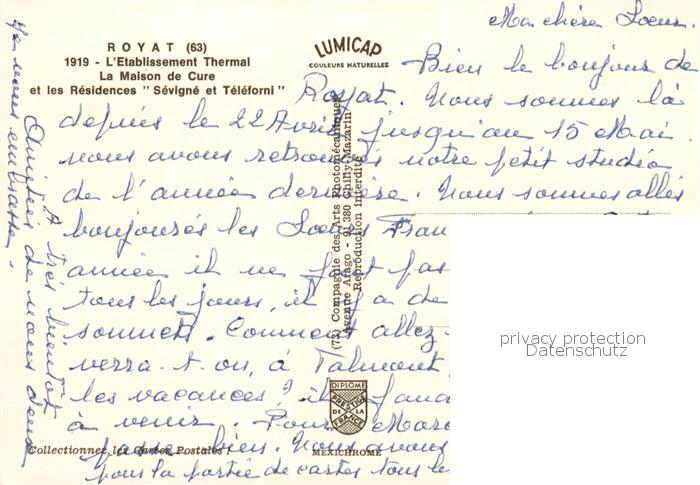 ROYAT (63)
1919 - L'Etablissement Thermal
La Maison de Cure
et les Résidences "Sévigné et Téléforni"
LUMICAP
COULEURS NATURELLES
Ma chère Soeur.
Bien le bonjour de
Royat. Nous sommes là
depuis le 22 Avril jusqu'au 15 Mai.
nous avons retrouvés notre petit studio
de l'année dernière. Nous sommes allés
les Soeurs
année il ne fait pas
tous les jours, il y a de
sommets. Comment allez-
verra-t-on, à Talmont
les vacances? il
à venir. Pour
passe bien. Nous avons
pour la partie de cartes tous les
A très bientôt
Amitiés de nous deux
embrasse.
(75) Compagnie des Arts Photomécaniques
Avenue Arago - 91380 Chilly-Mazarin
Reproduction interdite
DIPLOME
PRESTIGE
DE LA
FRANCE
MEXICHROME
Collectionnez les Cartes Postales !
privacy protection
Datenschutz